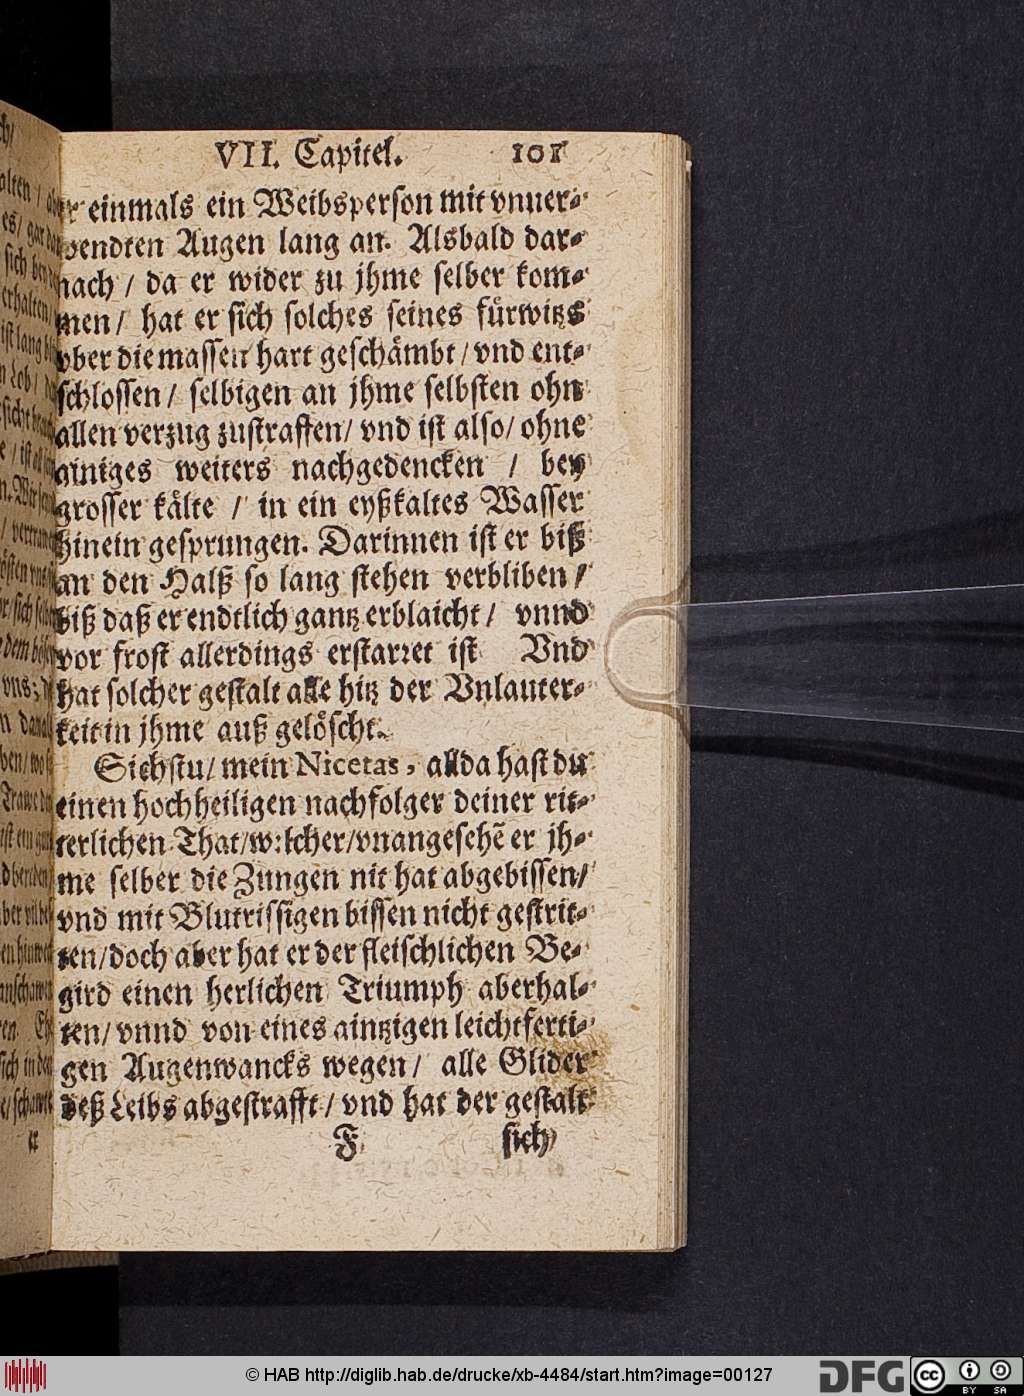 VII. Capitel. 101
er einmals ein Weibsperson mit vnuer⸗
wendten Augen lang an. Alsbald dar⸗
nach / da er wider zu jhme selber kom⸗
men / hat er sich solches seines fuͤrwitzs
vber die massen hart geschaͤmbt / vnd ent⸗
schlossen / selbigen an jhme selbsten ohn
allen verzug zustraffen / vnd ist also / ohne
ainiges weiters nachgedencken / bey
grosser kaͤlte / in ein eyßkaltes Wasser
hinein gesprungen. Darinnen ist er biß
an den Halß so lang stehen verbliben /
biß daß er endtlich gantz erblaicht / vnnd
vor frost allerdings erstarret ist Vnd
hat solcher gestalt alle hitz der Vnlauter⸗
keit in jhme auß geloͤscht.
Siehstu / mein Nicetas, allda hast du
einen hochheiligen nachfolger deiner rit⸗
terlichen That / w:lcher / vnangesehẽ er jh⸗
me selber die Zungen nit hat abgebissen /
vnd mit Blutrissigen bissen nicht gestrit⸗
ten / doch aber hat er der fleischlichen Be⸗
gird einen herlichen Triumph aberhal⸗
ten / vnnd von eines aintzigen leichtferti⸗
gen Augenwancks wegen / alle Glider
deß Leibs abgestrafft / vnd hat der gestalt
F sich
© HAB http://diglib.hab.de/drucke/xb-4484/start.htm?image=00127
DFG
cc
BY SA